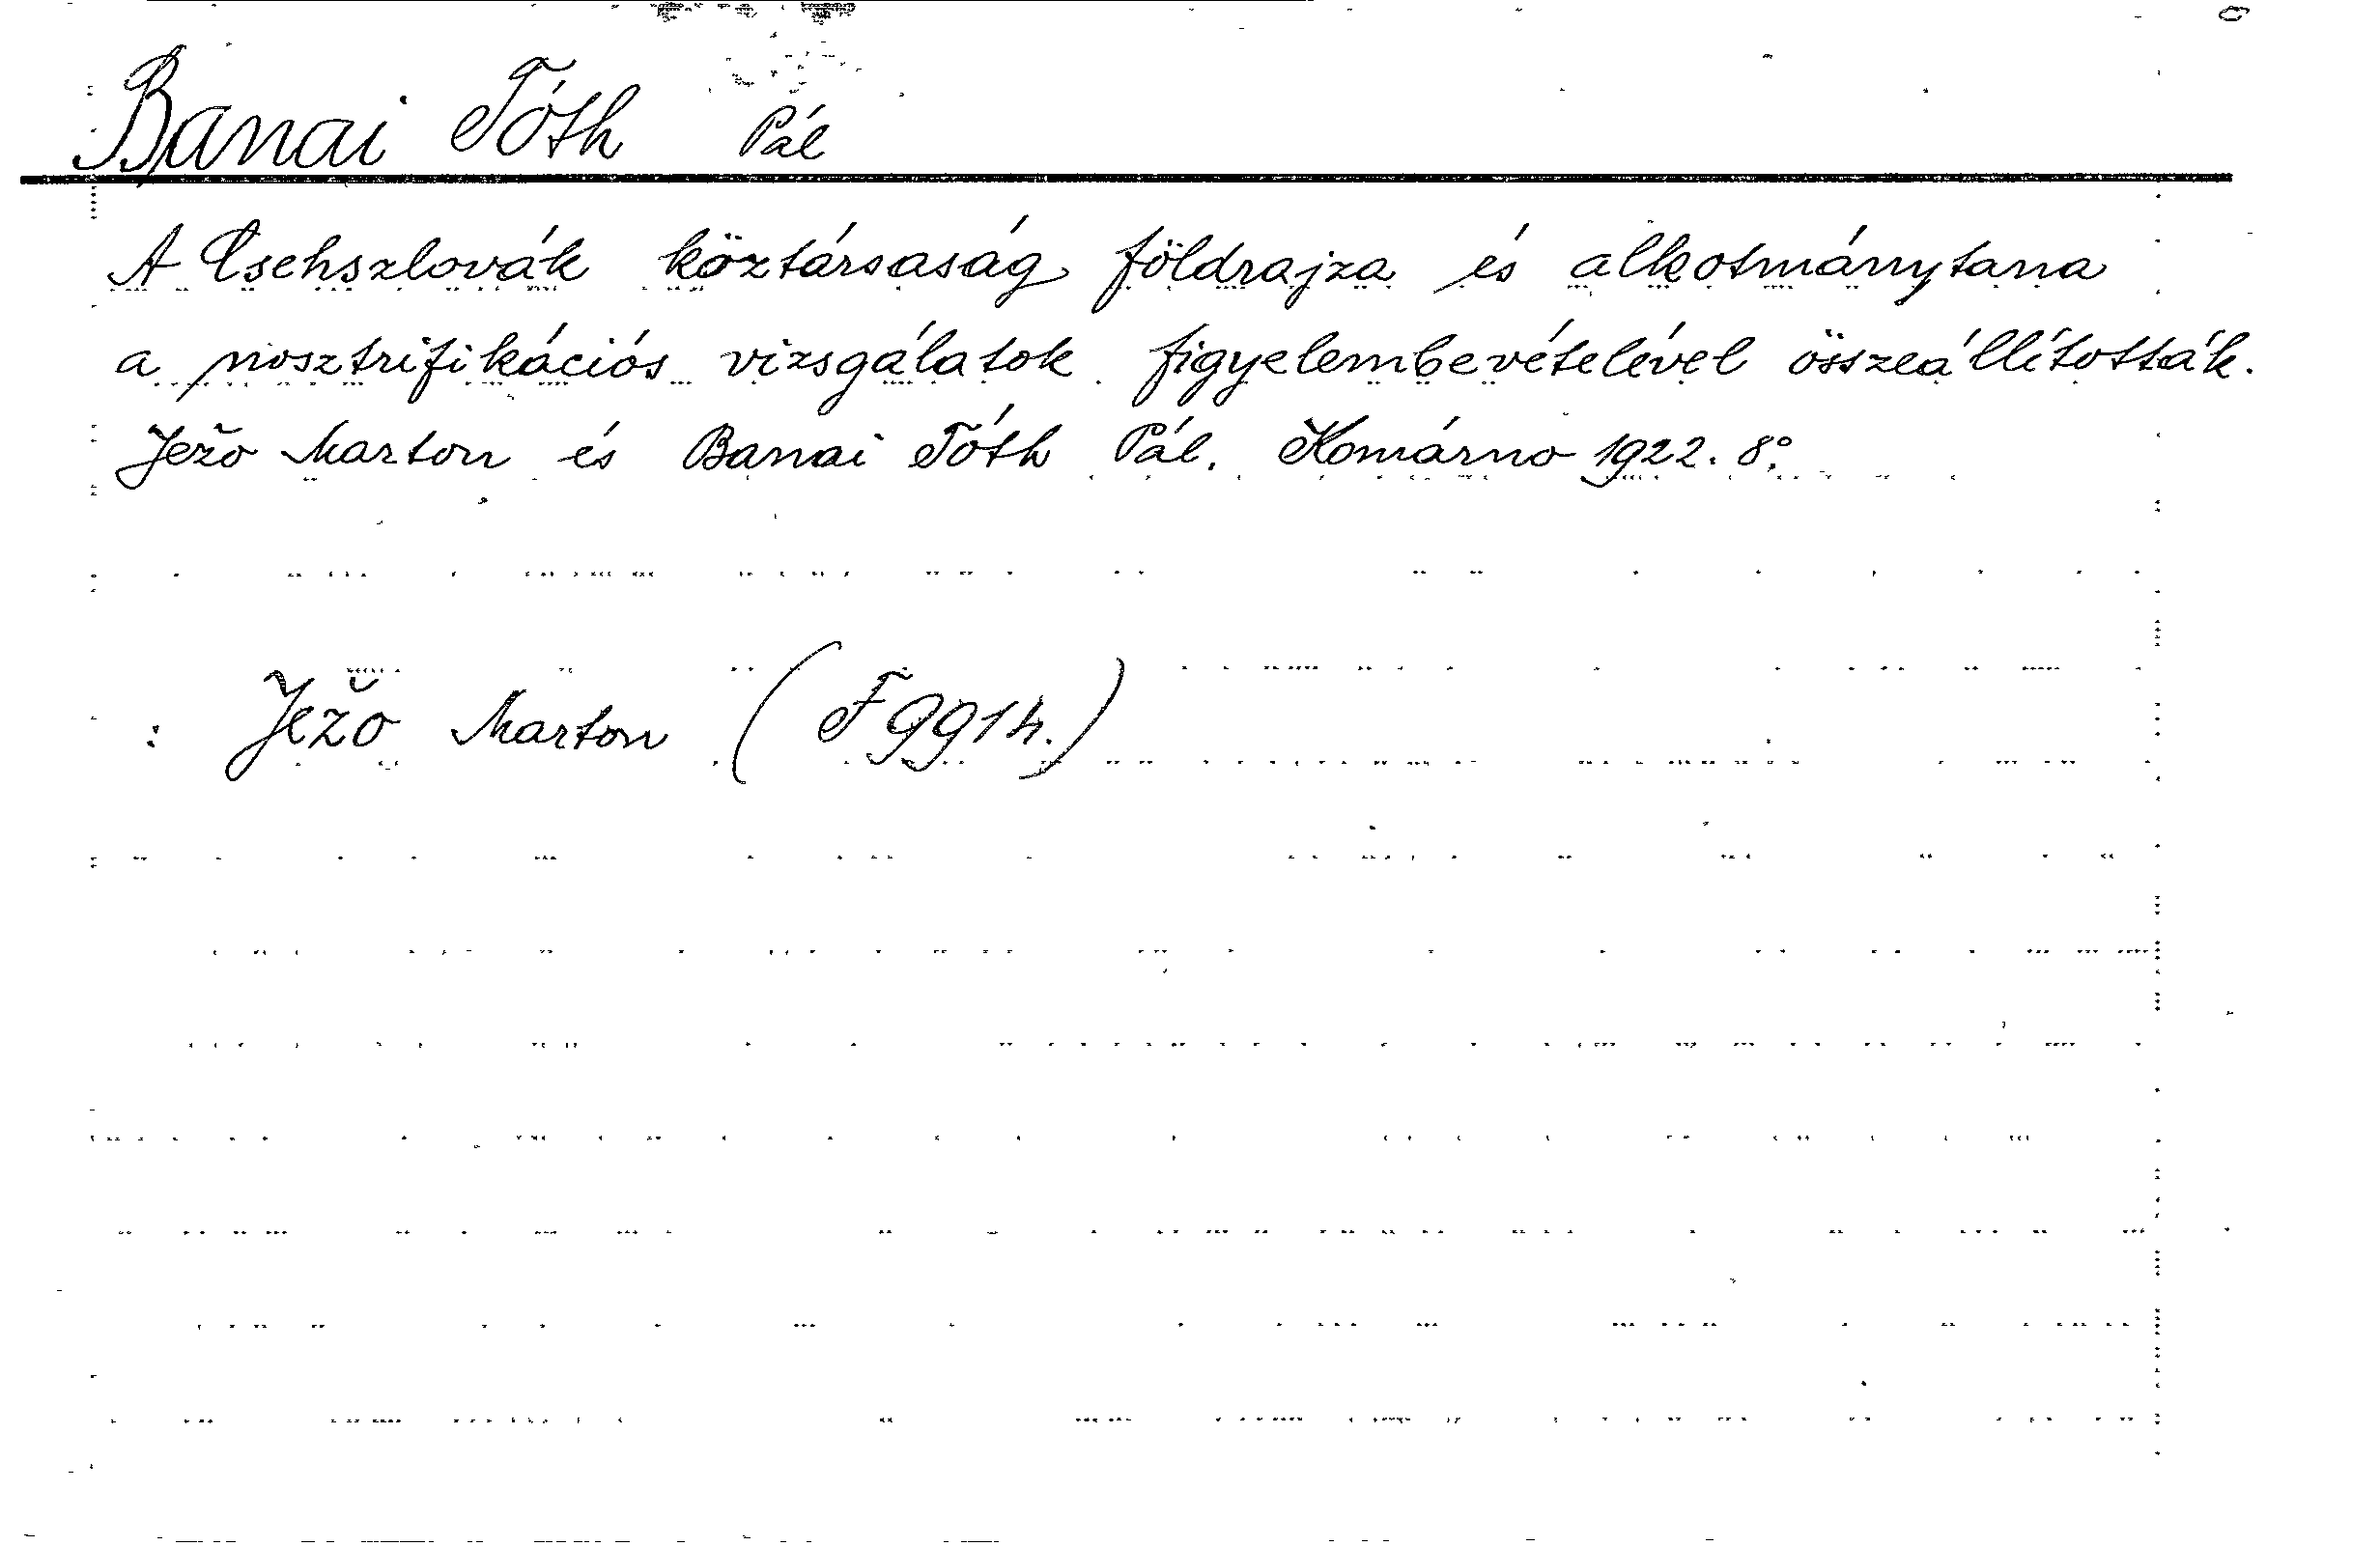 Banai Tóth Pál
A Csehszlovák köztársaság földrajza és alkotmánytana
a nosztrifikációs vizsgálatok figyelembevételével összeállították.
Ježo Marton és Banai Tóth Pál. Komárno 1922. 8°.
: Ježo Marton (F 9914.)